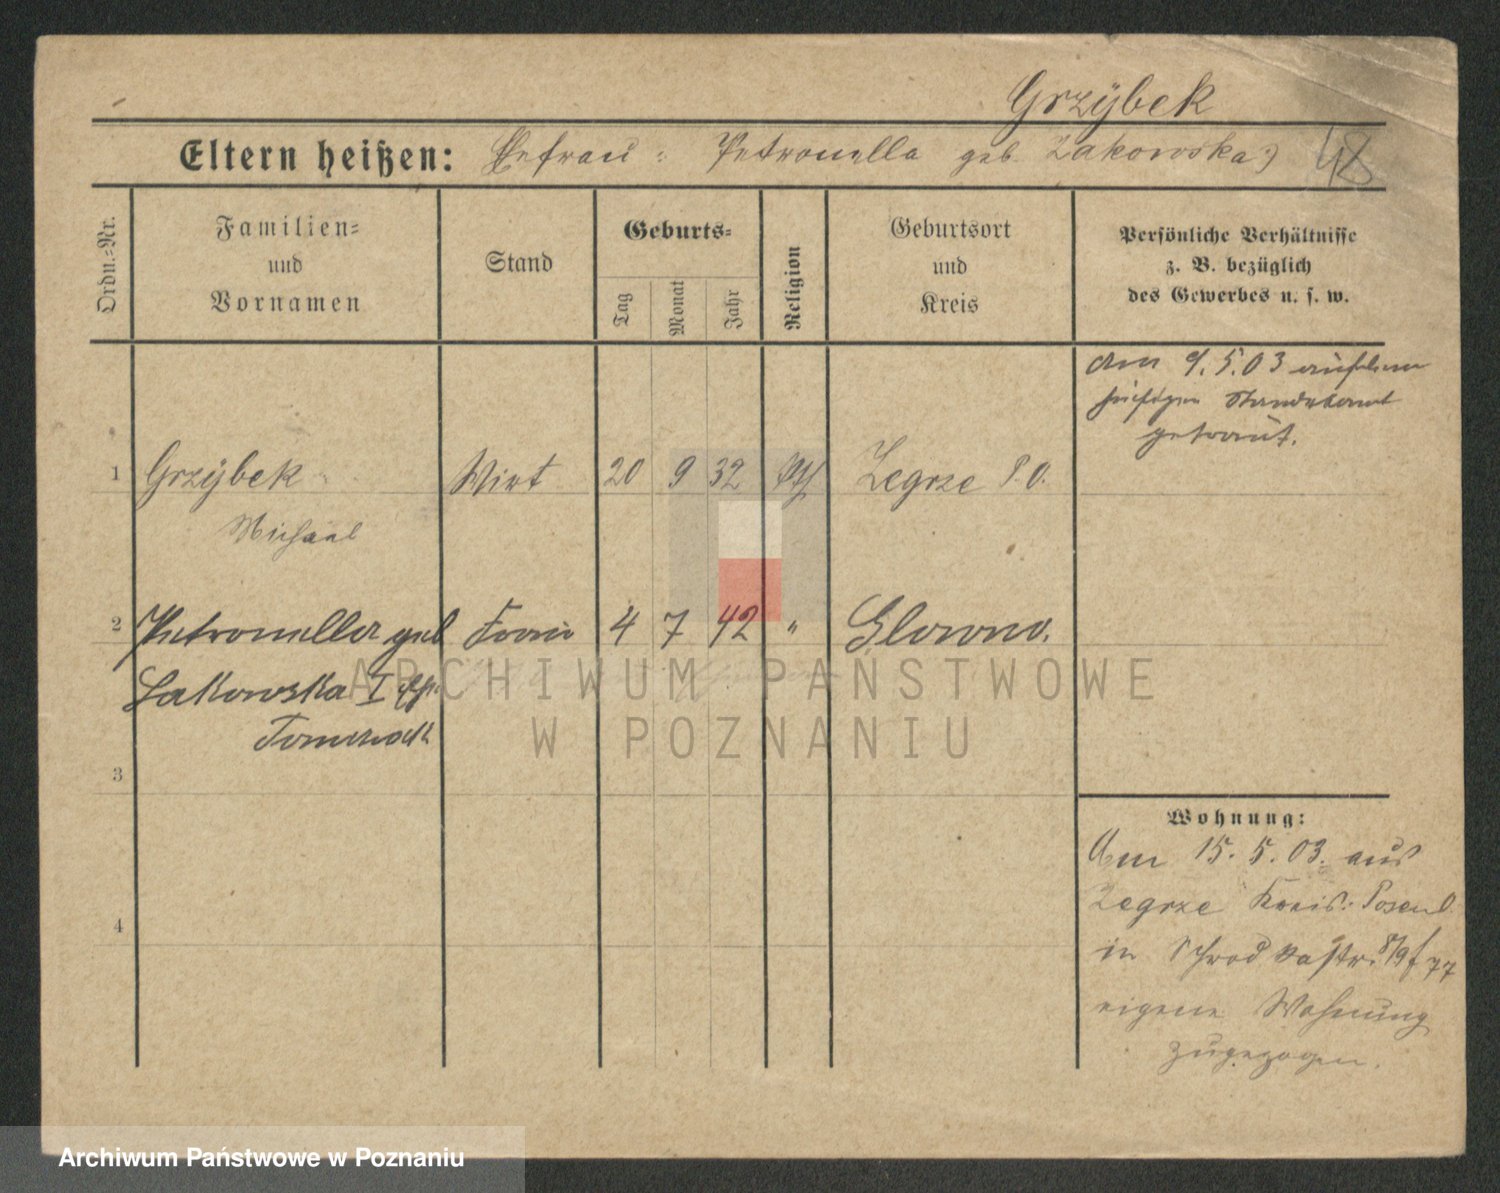 Grzÿbek
Eltern heißen: Ehefrau: Petronella geb. Zakowska:)
48
Ordn.-Nr.
Familien-
und
Vornamen
Stand
Geburts-
Tag
Monat
Jahr
Religion
Geburtsort
und
Kreis
Persönliche Verhältnisse
z. B. bezüglich
des Gewerbes u. s. w.
am 9.5.03 auf dem
hiesigen Standesamt
getraut.
1 Grzÿbek Wirt 20 9 32 kth Zegrze P.O.
Michael
2 Petronella geb Frau 4 7 42 " Glowno.
Zakowska I
ARCHIWUM PAŃSTWOWE
W POZNANIU
3
4
Wohnung:
Am 15.5.03. aus
Zegrze Kreis: Posen O.
in Schrodkastr. 8/9 f 77
eigene Wohnung
zugezogen.
Archiwum Państwowe w Poznaniu